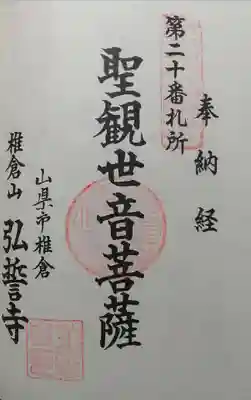 奉納経
第二十番札所
聖観世音菩薩
山県市椎倉
椎倉山 弘誓寺